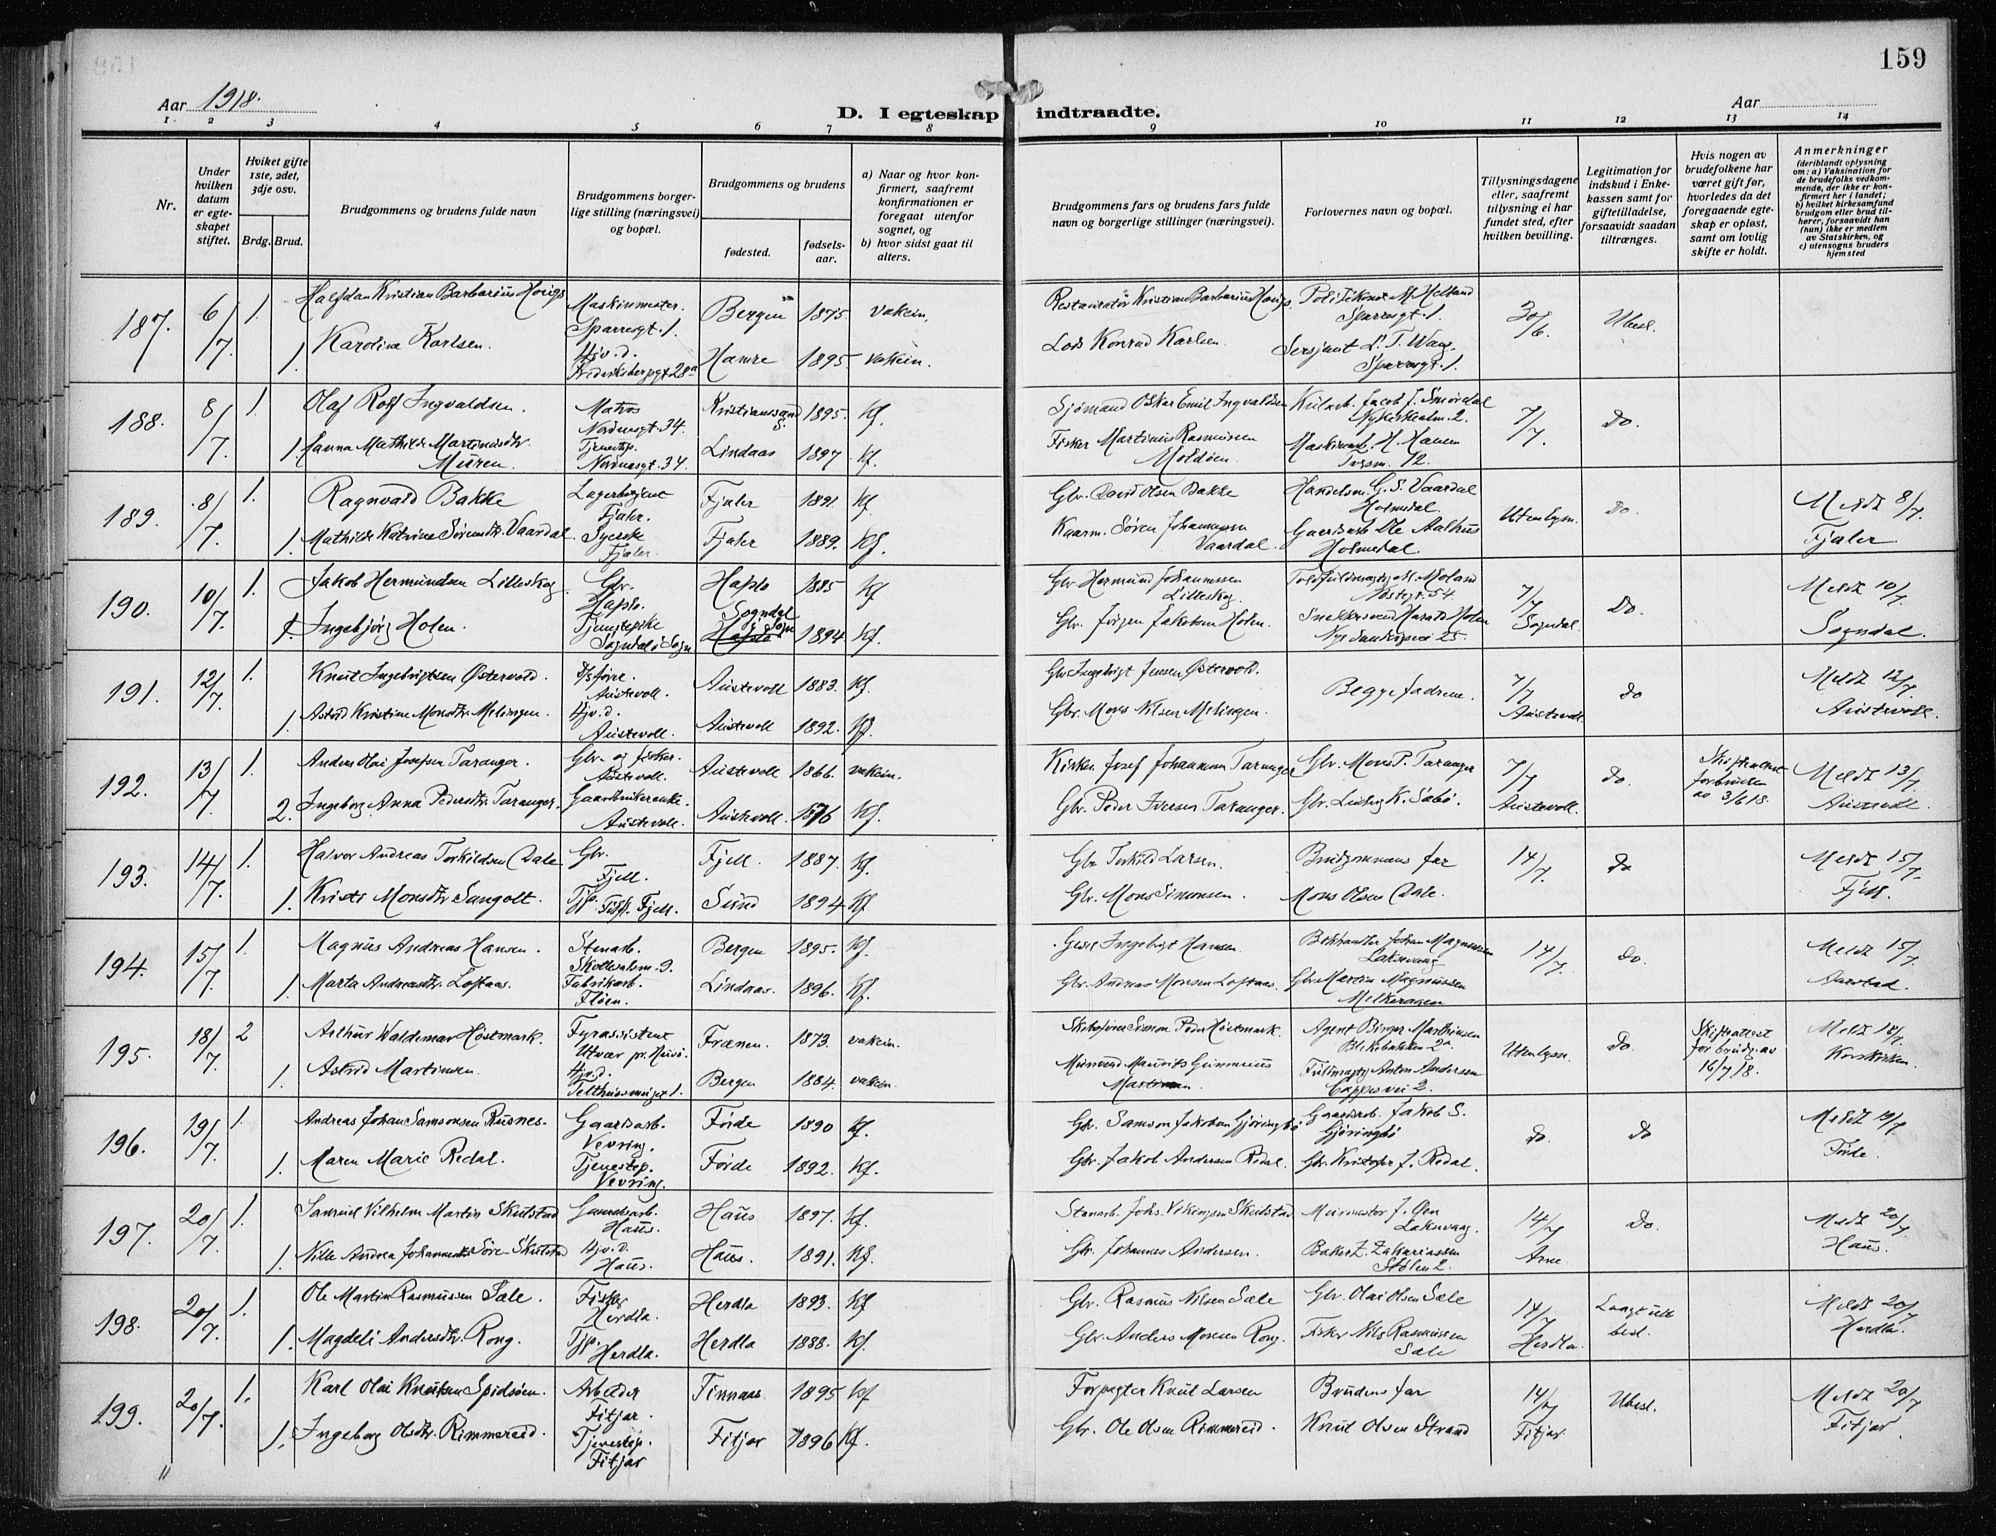 159
Aar 1918.
D. I egteskap indtraadte.
Aar
1. 2 3 4 5 6 7 8 9 10 11 12 13 14
Nr.
Under hvilken datum er egteskapet stiftet.
Hviket gifte 1ste, 2det, 3dje osv.
Brdg. Brud.
Brudgommens og brudens fulde navn
Brudgommens borgerlige stilling (næringsvei) og bopæl.
Brudgommens og brudens
fødested.
fødselsaar.
a) Naar og hvor konfirmert, saafremt konfirmationen er foregaat utenfor sognet, og
b) hvor sidst gaat til alters.
Brudgommens fars og brudens fars fulde navn og borgerlige stillinger (næringsvei).
Forlovernes navn og bopæl.
Tillysningsdagene eller, saafremt tillysning ei har fundet sted, efter hvilken bevilling.
Legitimation for indskud i Enkekassen samt for giftetilladelse, forsaavidt saadan tiltrænges.
Hvis nogen av brudefolkene har været gift før, hvorledes da det foregaaende egteskap er opløst, samt om lovlig skifte er holdt.
Anmerkninger (deriblandt oplysning om: a) Vaksination for de brudefolks vedkommende, der ikke er konfirmert her i landet; b) hvilket kirkesamfund brudgom eller brud tilhører, forsaavidt han (hun) ikke er medlem av Statskirken, og c) utensogns bruders hjemsted
187. 6/7. 1. Halfdan Kristian Barbarius Hougs Maskinmester. Sparresgt. 1. Bergen 1875 vaksin. Restauratør Kristian Barbarius Hougs. Sparresgt. 1. 30/6. Ubesl.
1. Karoline Karlsen. Hjv. d. Fredriksbergsgt 28a Hamre 1895 vaksin. Lods Konrad Karlsen Sersjant L. T. Sparresgt. 1.
188. 8/7. 1. Olaf Rolf Ingvaldsen. Matros Nordnesgt. 34. Kristianssand S. 1895. Kf. Sjømand Oskar Emil Ingvaldsen Jacob J. Smørdal 2. 7/7. Do.
1. Hanna Mathilde Martinusdtr. Muren. Tjenestep. Nordnesgt. 34. Lindaas 1897. Kf. Fisker Martinus Rasmussen H. Hansen 12.
189. 8/7. 1. Ragnvald Bakke Lagerbetjent Fjaler. Fjaler 1891 Kf. Gbr. David Olsen Bakke Handelsm. G. S. Vaardal Holmedal Utenbysn. Do. Meldt 8/7.
1. Mathilde Katrine Sørensdtr. Vaardal. Syerske Fjaler. Fjaler 1889. Kf. Kaarm. Søren Johannessen Vaardal. Gaardsarb. Ole Aalhus Holmedal Fjaler
190. 10/7. 1. Jakob Hermundsen Lilleskog. Gbr. Hafslo. Hafslo 1885 Kf Gbr Hermund Johannessen Lilleskog. Moland Nøstegt. 54. 7/7 Do. Meldt 10/7.
1. Ingebjørg Holen. Tjenestepike Sogndal i Sogn Sogndal i Sogn Hafslo 1894 Kf. Gbr. Jørgen Jakobsen Holen. Snekkersvend Harald Holen Nye Sandviksvei 25. Sogndal. Sogndal.
191. 12/7. 1. Knut Ingebrigtsen Østervold. Austevoll. Austevoll 1883. Kf. Gbr Ingebrigt Jensen Østervold. Begge fædrene. 7/7 Do Meldt 12/7.
1. Astrid Kristine Monsdtr. Melingen. Hjv. d. Austevoll. Austevoll 1892. Kf. Gbr. Mons Nilsen Melingen. Austevoll Austevoll.
192. 13/7 1. Anders Olai Josefsen Taranger. Gbr. og fisker. Austevoll. Austevoll 1866. vaksin. Josef Johannesen Taranger Gbr. Mons P. Taranger 7/7 Do. Skifteattest for bruden av 3/6 18. Meldt 13/7
2. Ingeborg Anna Pedersdtr. Taranger. Gaardbrukerenke. Austevoll. Austevoll. 1876 Kf. Gbr. Peder Iversen Taranger. Gbr. Ludvig K. Søbø. Austevoll. Austevoll
193. 14/7. 1. Halvor Andreas Torkildsen Dale Gbr. Fjell. Fjell. 1887 Kf. Gbr Torkild Larsen. Brudgommens far 14/7. Do Meldt 15/7.
1. Kristi Monsdtr. Sangolt. Fjell. Sund 1894 Kf Gbr. Mons Simonsen. Mons Olsen Dale. Fjell.
194. 15/7. 1. Magnus Andreas Hansen. Stenarb. 9. Bergen 1895. Kf. Ingebrigt Hansen. Johan Magnussen Laksevaag 14/7. Do. Meldt 15/7.
1. Marta Andreasdtr. Loftaas. Fabrikarb. Fløen. Lindaas. 1896. Kf. Gbr. Andreas Monsen Loftaas. Gbr. Martin Magnussen Aarstad.
195. 18/7. 2 Arthur Waldemar Høstmark. Fyrassistent Frænen. 1873. vaksin. Simon Peder Høstmark. Agent Birger Mathiesen 2a Utenbysn. Do. Skifteattest for brudg. av 16/7 18. Meldt 18/7.
1. Astrid Martinsen. Hjv. d. 1. Bergen 1884. vaksin. Maurits Gunnerius Martinsen Fuldmægtig Anton Andersen 2. Korskirken
196. 19/7. 1. Andreas Johan Samsonsen Rusnes. Gaardsarb. Vevring. Førde 1890 Kf. Gbr. Samson Jakobsen Gjøringbø Gaardsarb. Jakob S. Gjøringbø Do. Do Meldt 19/7.
1. Maren Marie Redal. Tjenestep. Vevring. Førde 1892. Kf. Gbr. Jakob Andersen Redal. Gbr. Kristofer J. Redal. Førde.
197. 20/7. 1. Samuel Vilhelm Martin Skulstad Gaardsarb. Haus. Haus 1897. Kf. Stenarb. Johs. Vikingsen Skulstad Murmester J. Laksevaag. 14/7 Do. Meldt 20/7
1. Nille Andrea Johannesdtr Søre-Skulstad Hjv. d. Haus. Haus. 1891. Kf. Gbr. Johannes Andersen. Baker Z. Zakariassen Stølen 2. Arne. Haus.
198. 20/7. 1. Ole Martin Rasmussen Sæle. Fisker Herdla. Herdla 1893. Kf Gbr. Rasmus Nilsen Sæle Gbr. Olai Olsen Sæle 14/7 Langt ute besl. Meldt 20/7
1. Magdeli Andersdtr. Rong. Tjp. Herdla. Herdla 1888. Kf Gbr. Anders Monsen Rong. Fisker Nils Rasmussen Sæle Herdla. Herdla.
199. 20/7. 1. Karl Olai Knutsen Spidsøen. Arbeider Fitjar. Finnaas 1895 Kf Forpagter Knut Larsen Brudens far 14/7 Ubesl. Meldt 20/7
1. Ingeborg Olsdtr. Rimmereid. Tjenestep. Fitjar Fitjar 1896 Kf. Gbr. Ole Olsen Rimmereid. Knut Olsen Strand Fitjar Fitjar.